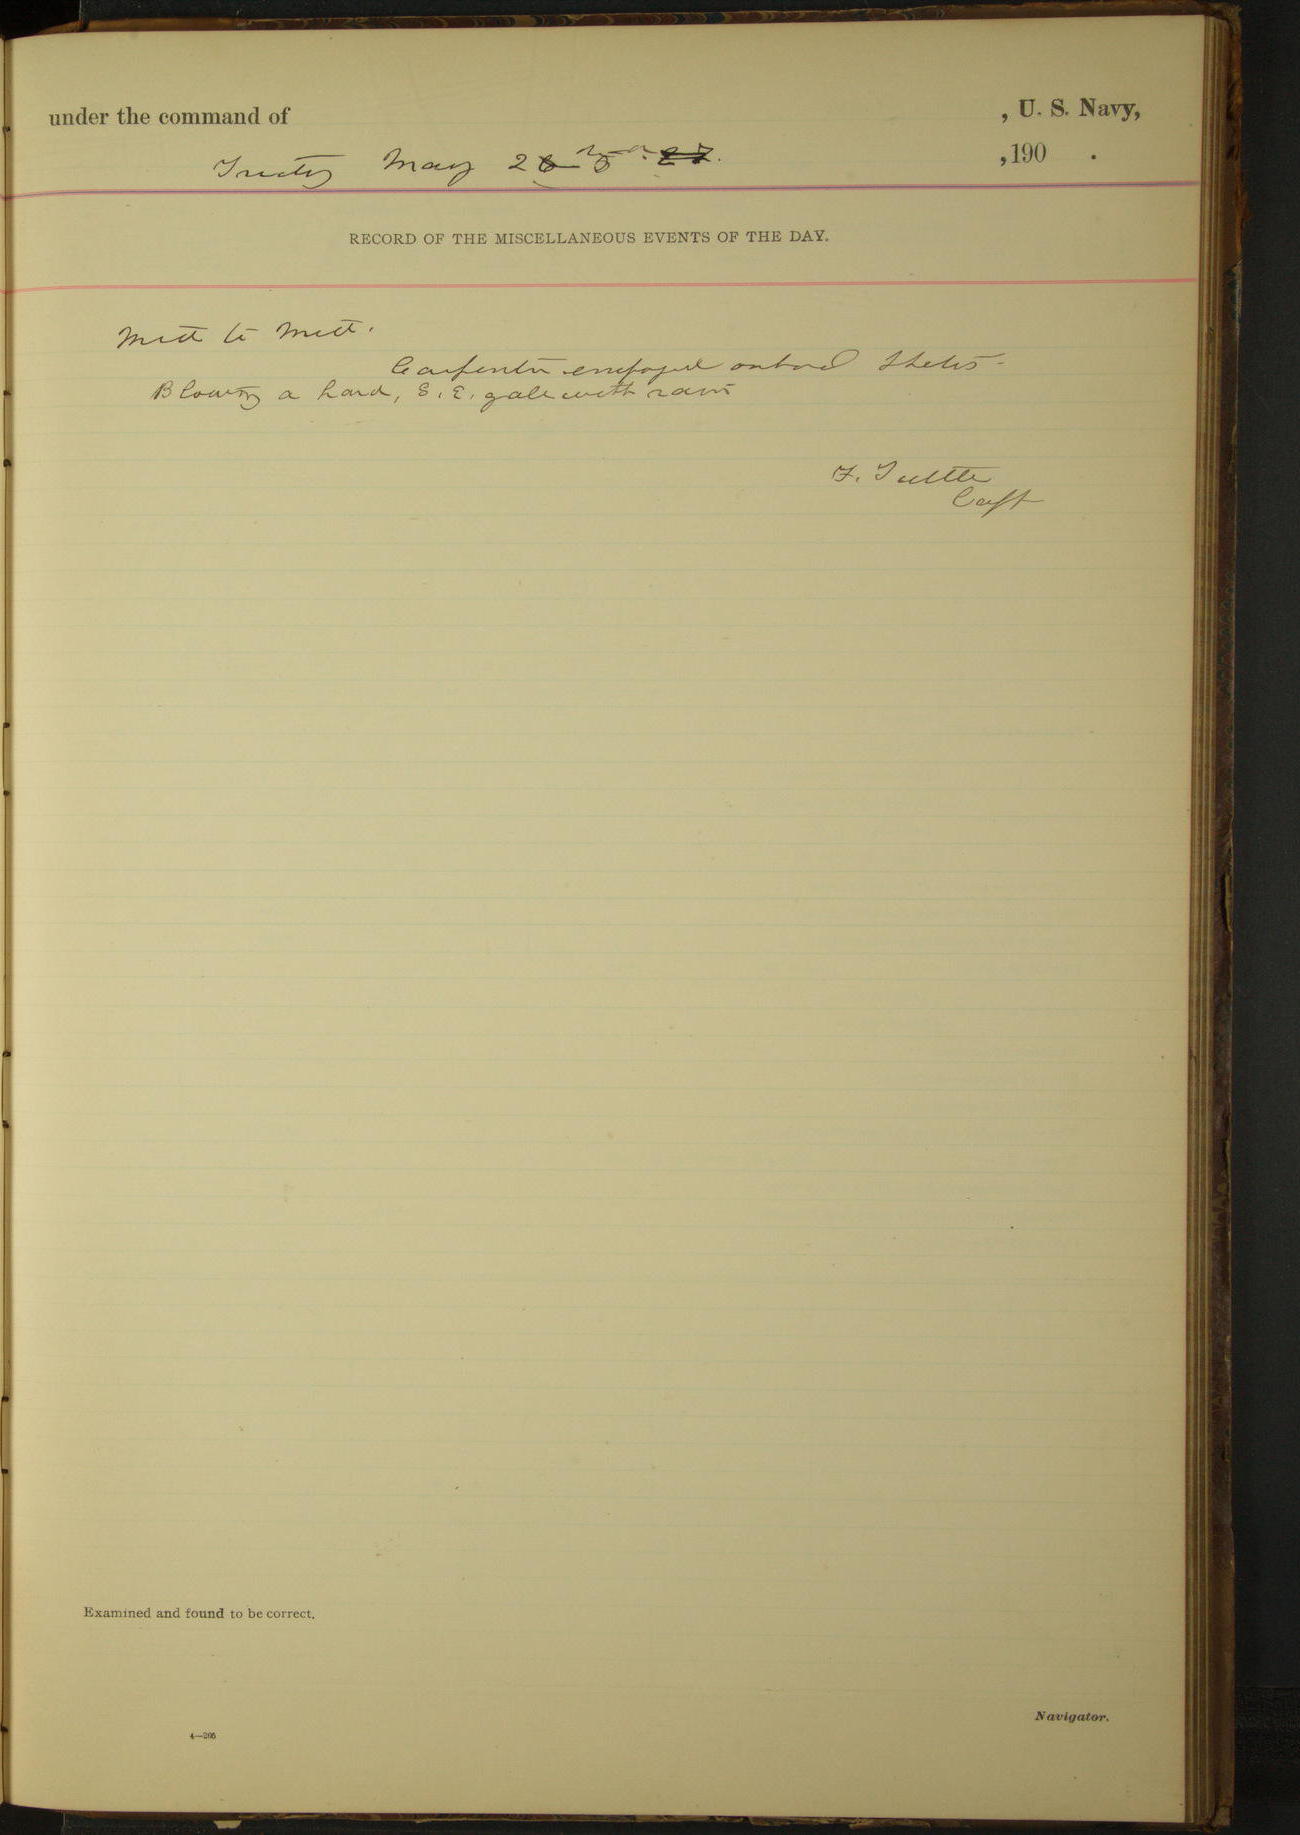 under the command of , U. S. Navy,
May 26 5 27. ,190 .
RECORD OF THE MISCELLANEOUS EVENTS OF THE DAY.
Mdt to Mdt.
Carpenter employed onbord
Blowing a hard, S. E. gale with rain
F. Tuttle
Capt
Examined and found to be correct.
Navigator.
4—205